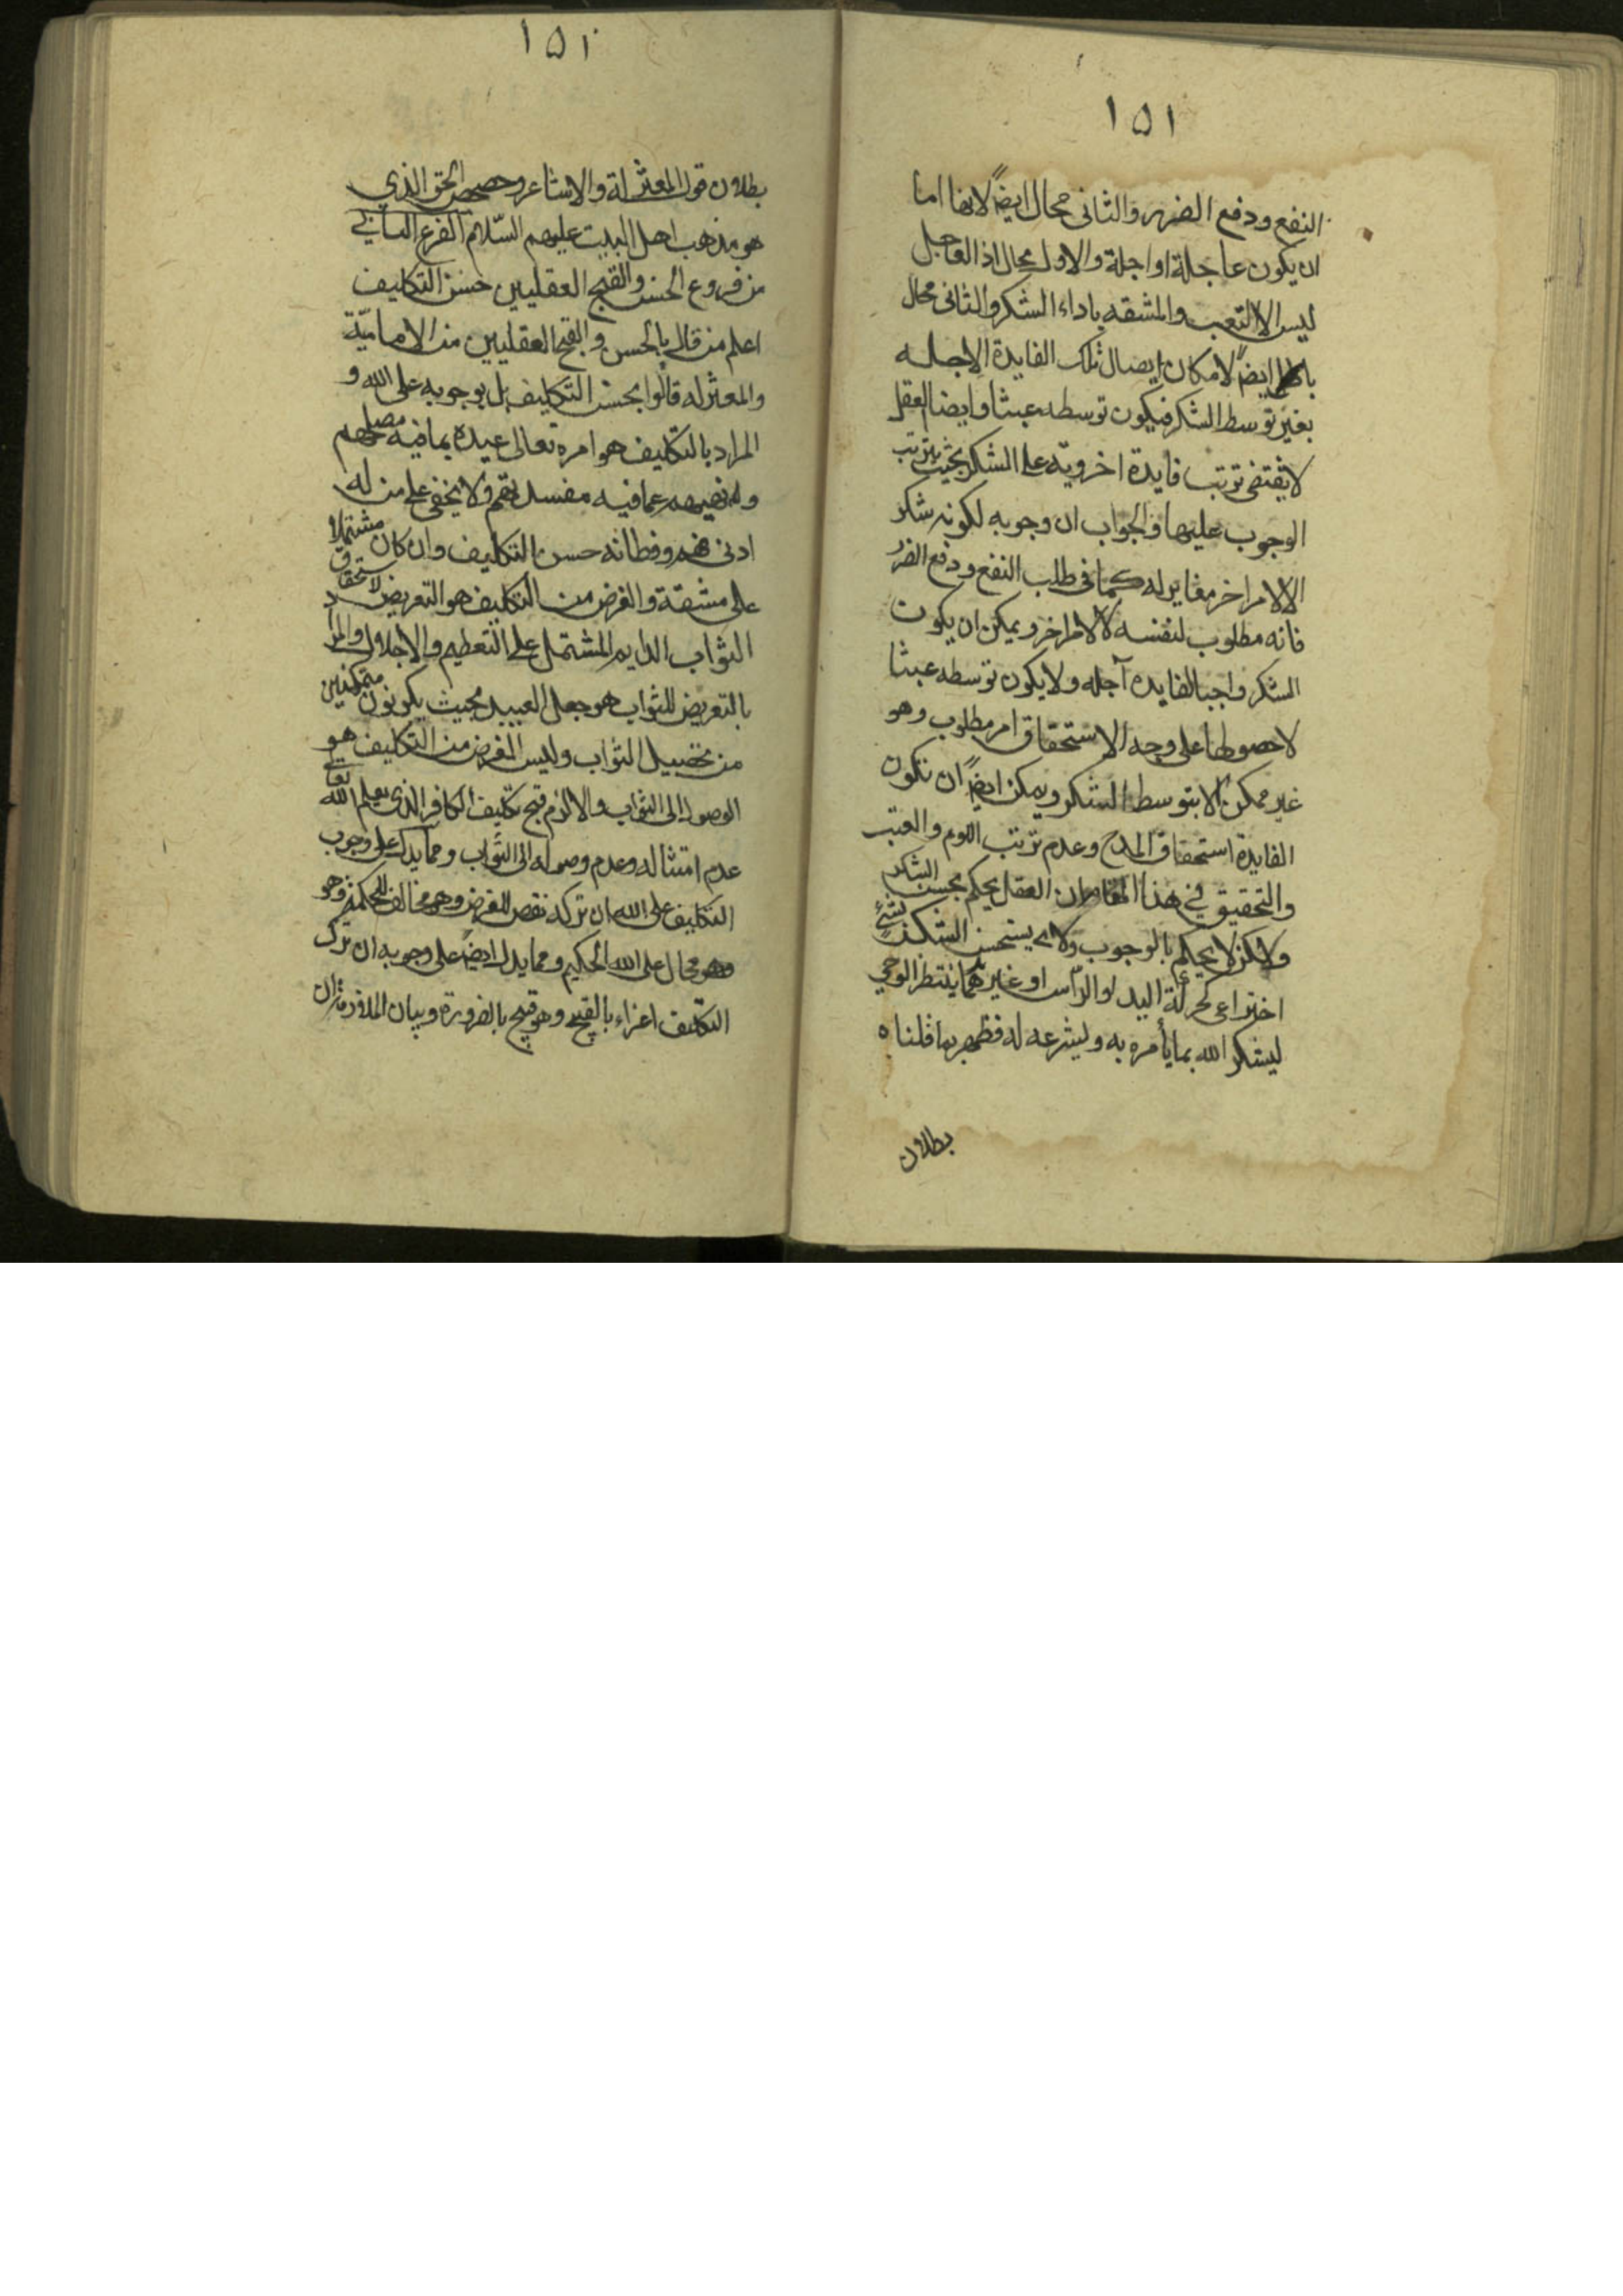 ١٥١
النفع ودفع الضرر والثانى محال ايضاً لانها اما
ان يكون عاجلة او اجلة والاول محال اذ العاجل
ليس الا التعب والمشقه باداء الشكر والثانى محال
ايضاً لامكان ايصال تلك الفايدة الاجله
بغير توسط الشكر فيكون توسطه عبثا وايضا العقل
لا يقتضى ترتب فايدة اخرويّة على الشكر بحيث يترتب
الوجوب عليها والجواب ان وجوبه لكونه شكر
الا لامر اخر مغاير له كما فى طلب النفع ودفع الضرر
فانه مطلوب لنفسه لا لامر اخر ويمكن ان يكون
الشكر واجبا لفايدة آجله ولا يكون توسطه عبثا
لا حصولها على وجه الاستحقاق امر مطلوب وهو
غير ممكن الا بتوسط الشكر ويمكن ايضاً ان تكون
الفايدة استحقاق المدح وعدم ترتب اللوم والعتب
والتحقيق في هذا المقام ان العقل يحكم بحسن الشكر
ولاكن لا يحكم بالوجوب ولا يستحسن الشكر بشيءٍ
اختراعى كحركة اليد او الراس او غيرهما ينتظر الوحي
ليشكر الله بما يأمره به ويشرعه له فظهر بما قلناه
بطلان
١٥١
بطلان قول المعتزلة والاشاعر وحصحص الحق الذي
هو مذهب اهل البيت عليهم السّلام الفرع الثاني
من فروع الحسن والقبح العقليين حسن التكليف
اعلم من قال بالحسن والقبح العقليين من الاماميّة
والمعتزله قالوا بحسن التكليف بل بوجوبه على الله و
المراد بالتكليف هو امره تعالى عبيده بما فيه مصلحتهم
ونهيهم عما فيه مفسدتهم ولا يخفى على من له
ادنى فهم وفطانه حسن التكليف وان كان مشتملا
على مشقة والغرض من التكليف هو التعريض لاستحقاق
الثواب الدايم المشتمل على التعظيم والاجلال والمراد
بالتعريض للثواب هو جعل العبيد بحيث يكونون متمكنين
من تحصيل الثواب وليس الغرض من التكليف هو
الوصول الى الثواب والا لزم قبح تكليف الكافر الذى يعلم الله تعالى
عدم امتثاله وعدم وصوله الى الثواب ومما يدل على وجوب
التكليف على الله ان تركه نقص للغرض وهو مخالف للحكمة وهو
محال على الله الحكيم ومما يدل ايضاً على وجوبه ان ترك
التكليف اغراء بالقبيح وهو قبيح بالضرورة وبيان الملازمة ان